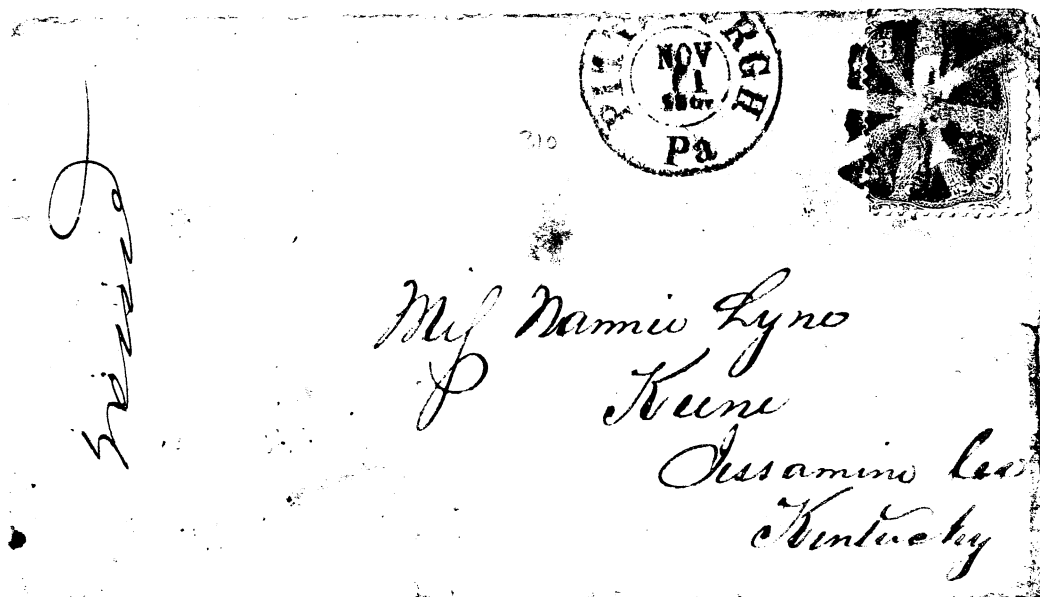 PITT RGH
NOV
Pa
310
Miss Nannie Lyne
Keene
Jessamine Co
Kentucky